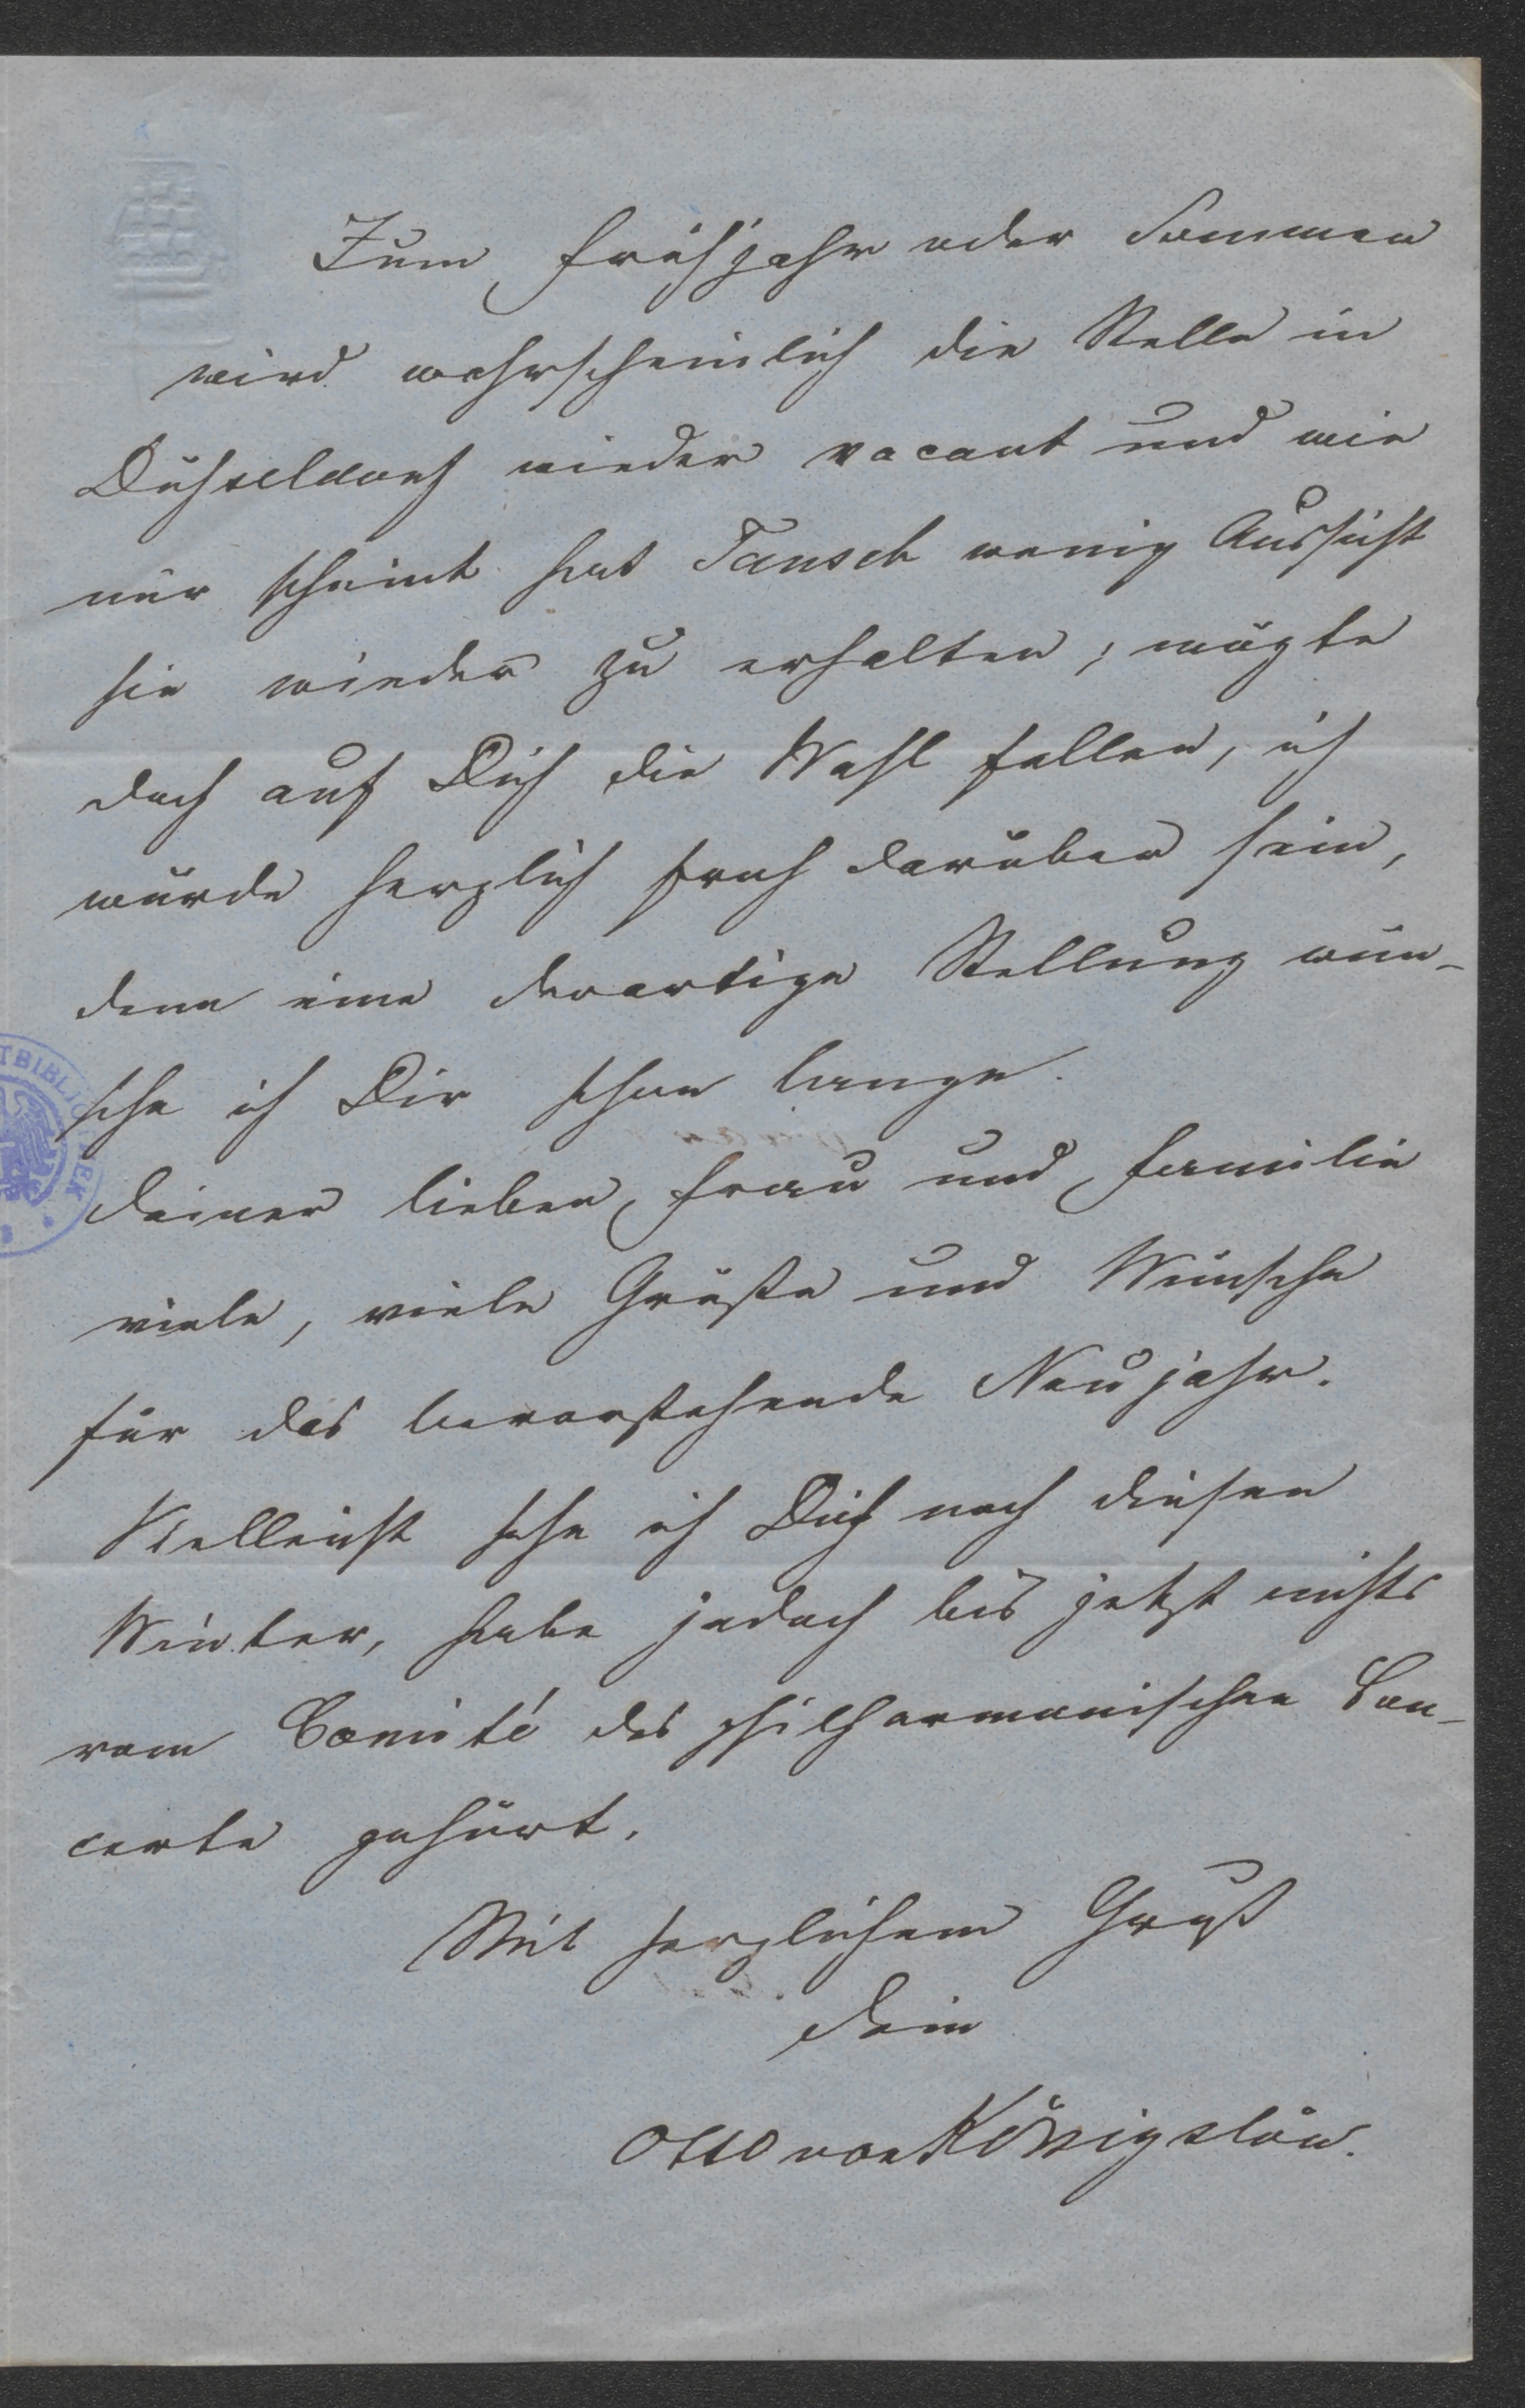 Zum Frühjahr oder Sommer
wird wahrscheinlich die Stelle in
Düsseldorf wieder vacant und wie
mir scheint hat Tausch wenig Aussicht
sie wieder zu erhalten; mögte
doch auf Dich die Wahl fallen, ich
würde herzlich froh darüber sein,
denn eine derartige Stellung wün-
sche ich Dir schon lange.
Deiner lieben Frau und Familie
viele, viele Grüße und Wünsche
für das bevorstehende Neujahr.
Vielleicht sehe ich Dich noch diesen
Winter, habe jedoch bis jetzt nichts
vom Comité des philharmonischen Con-
certe gehört.
Mit herzlichem Gruß
Dein
Otto von Königslöw.